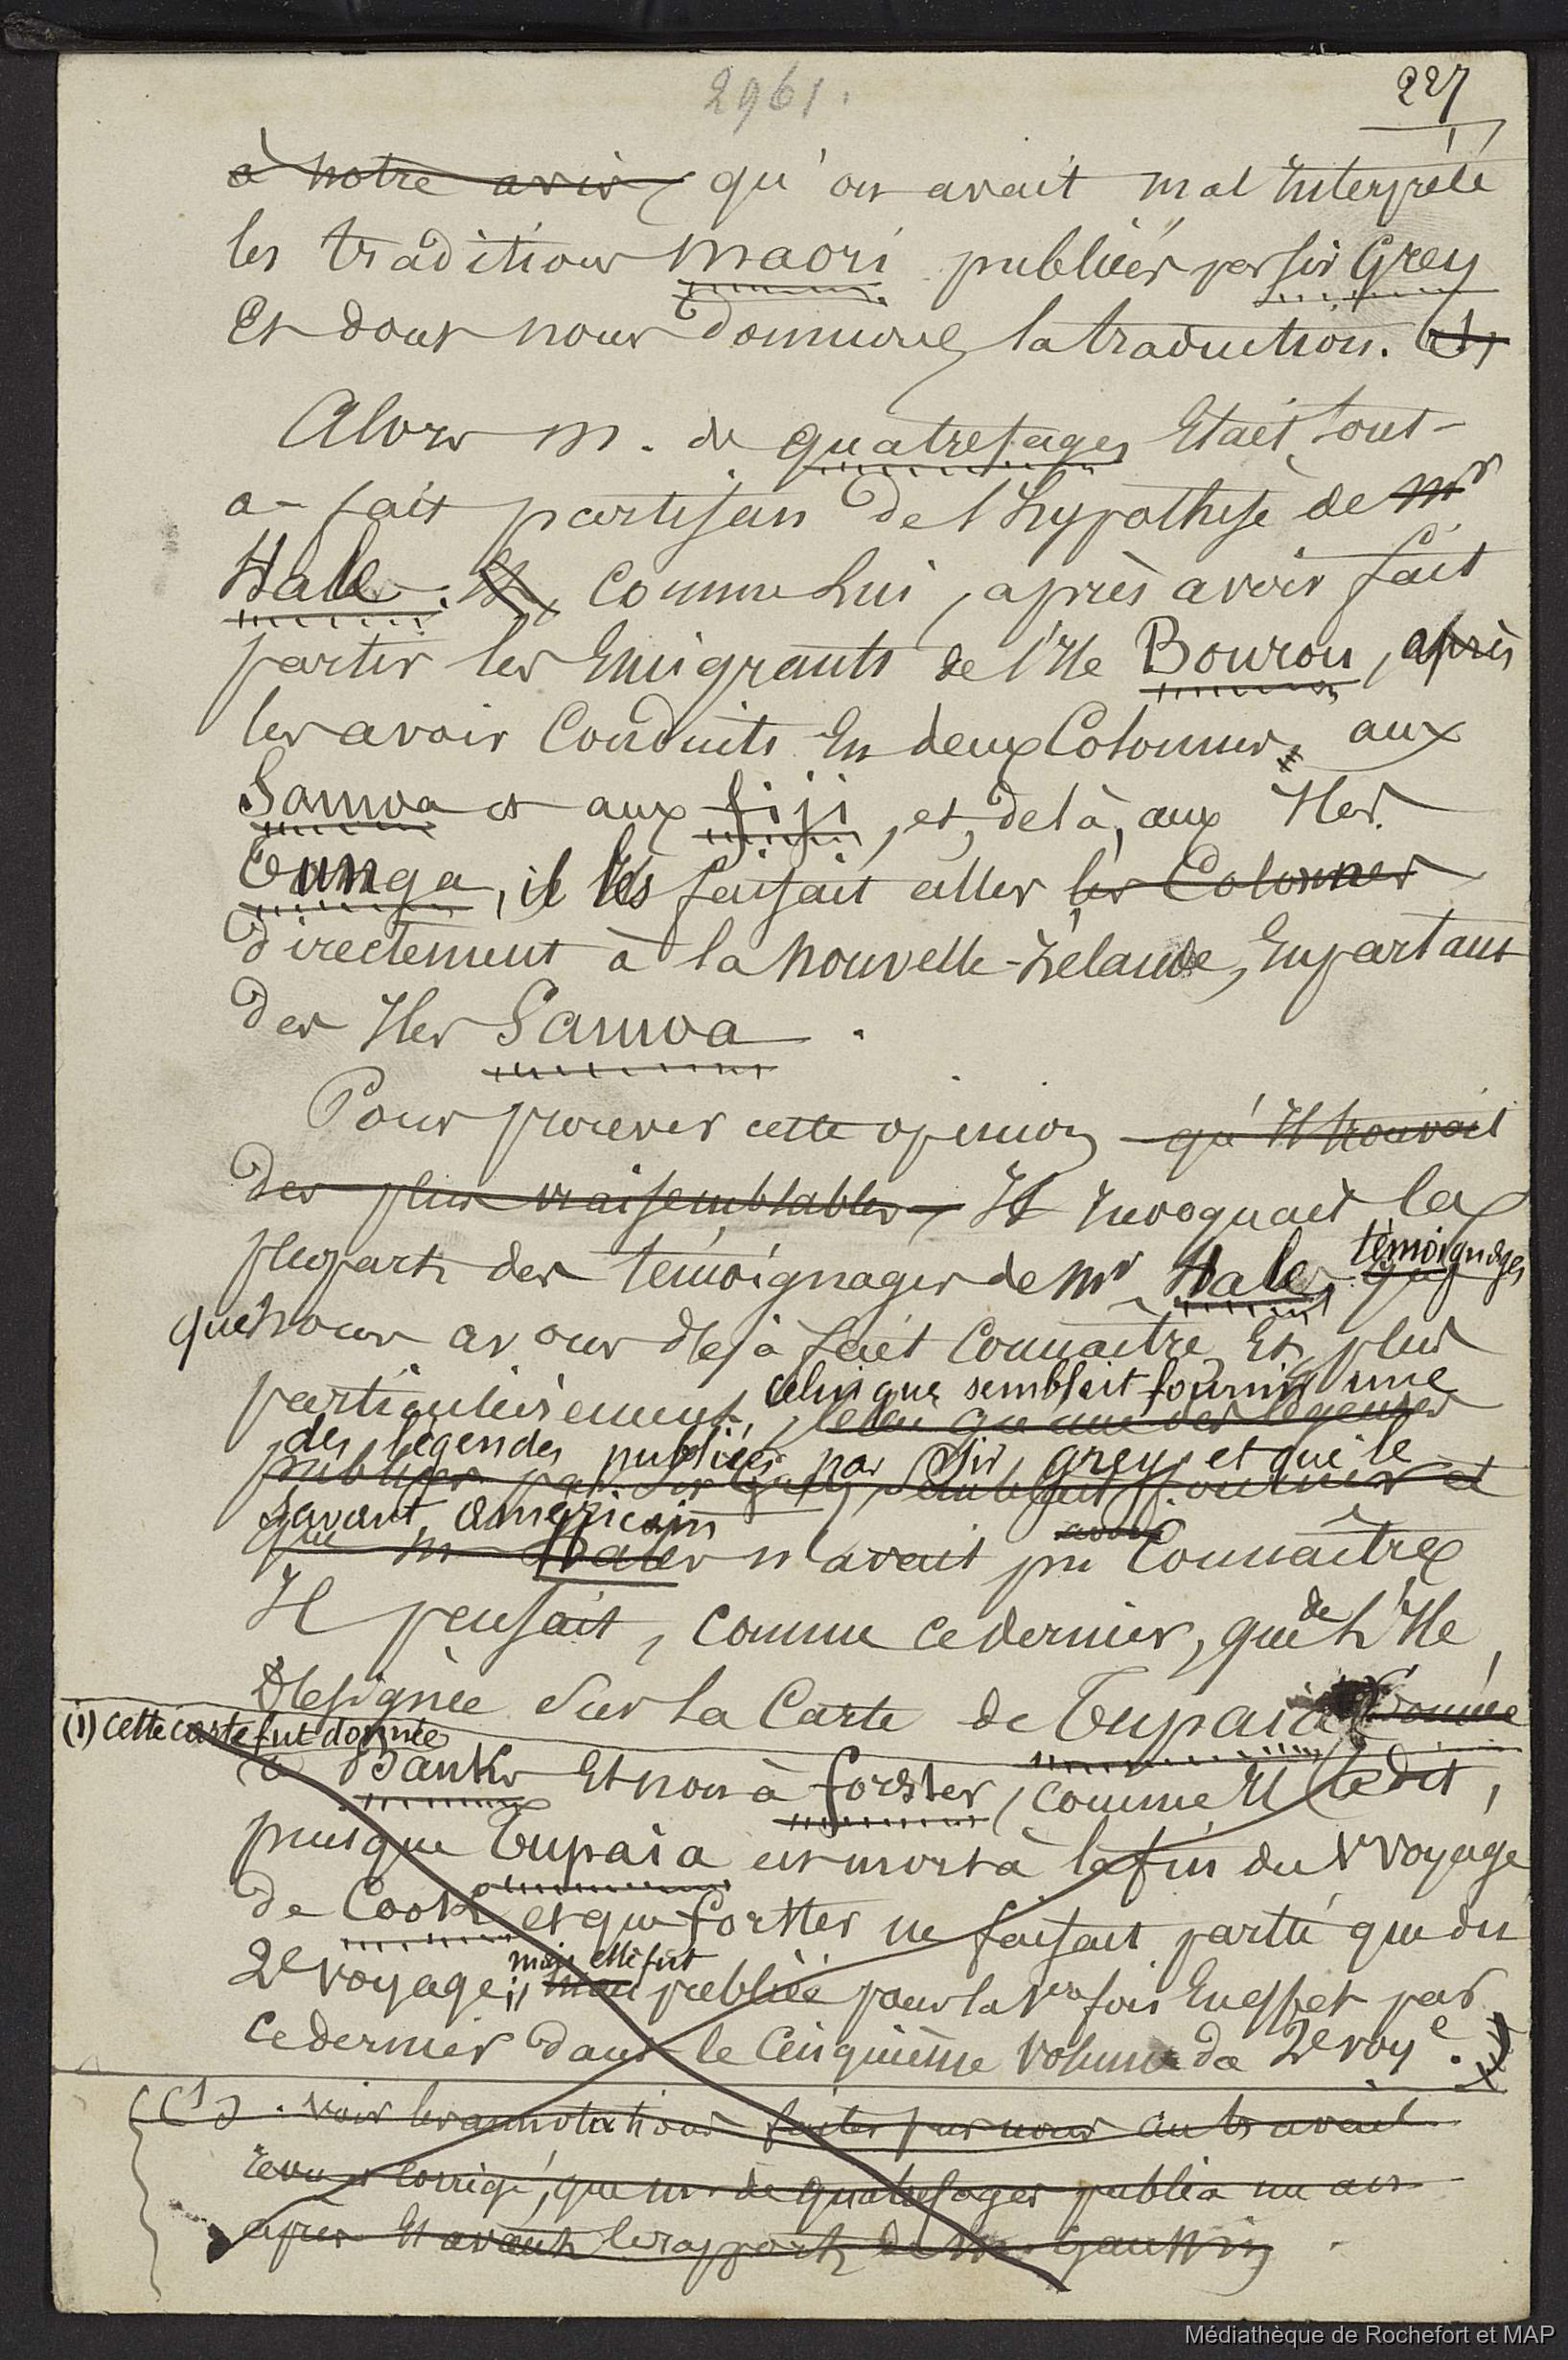 2961.
227
à notre avis, qu'on avait mal interprété
les traditions Maori publiées par Sir Grey
et dont nous donnions la traduction.
Alors M. de Quatrefages était tout-
à-fait partisan de l'hypothèse de Mr
Hale. Et, comme lui, après avoir fait
partir les émigrants de l'Ile Bourou, après
les avoir conduits en deux colonnes, aux
Samoa et aux Fiji, et, de là, aux Iles
Tunga, il les faisait aller les colonnes
directement à la Nouvelle-Zélande, en partant
des Iles Samoa.
Pour prouver cette opinion qu'il trouvait
des plus vraisemblables, il invoquait la
plupart des témoignages de Mr Hale, témoignages
que nous avons déjà fait connaître et, plus
particulièrement, celui que semblait fournir une
celui qu'une des légendes
des légendes publiées par Sir Grey, et que le
publiées par Sir Grey, semblait fournir et
savant américain
que M. Hale n'avait pu connaître
Il pensait, comme ce dernier, que de l'Ile
désignée sur la carte de Tupaia donnée
(1) cette carte fut donnée
à Banks et non à Forster, comme il le dit,
puisque Tupaia est mort à la fin du 1er voyage
de Cook et que Forster ne faisait partie que du
2e voyage; mais elle fut publiée pour la 1re fois en effet par
ce dernier dans le cinquième volume du 2e voye.)
(1). Voir les annotations faites par nous au travail
revu et corrigé, que M. de Quatrefages publia un an
après et avant le rapport de M. Gaussin.
Médiathèque de Rochefort et MAP